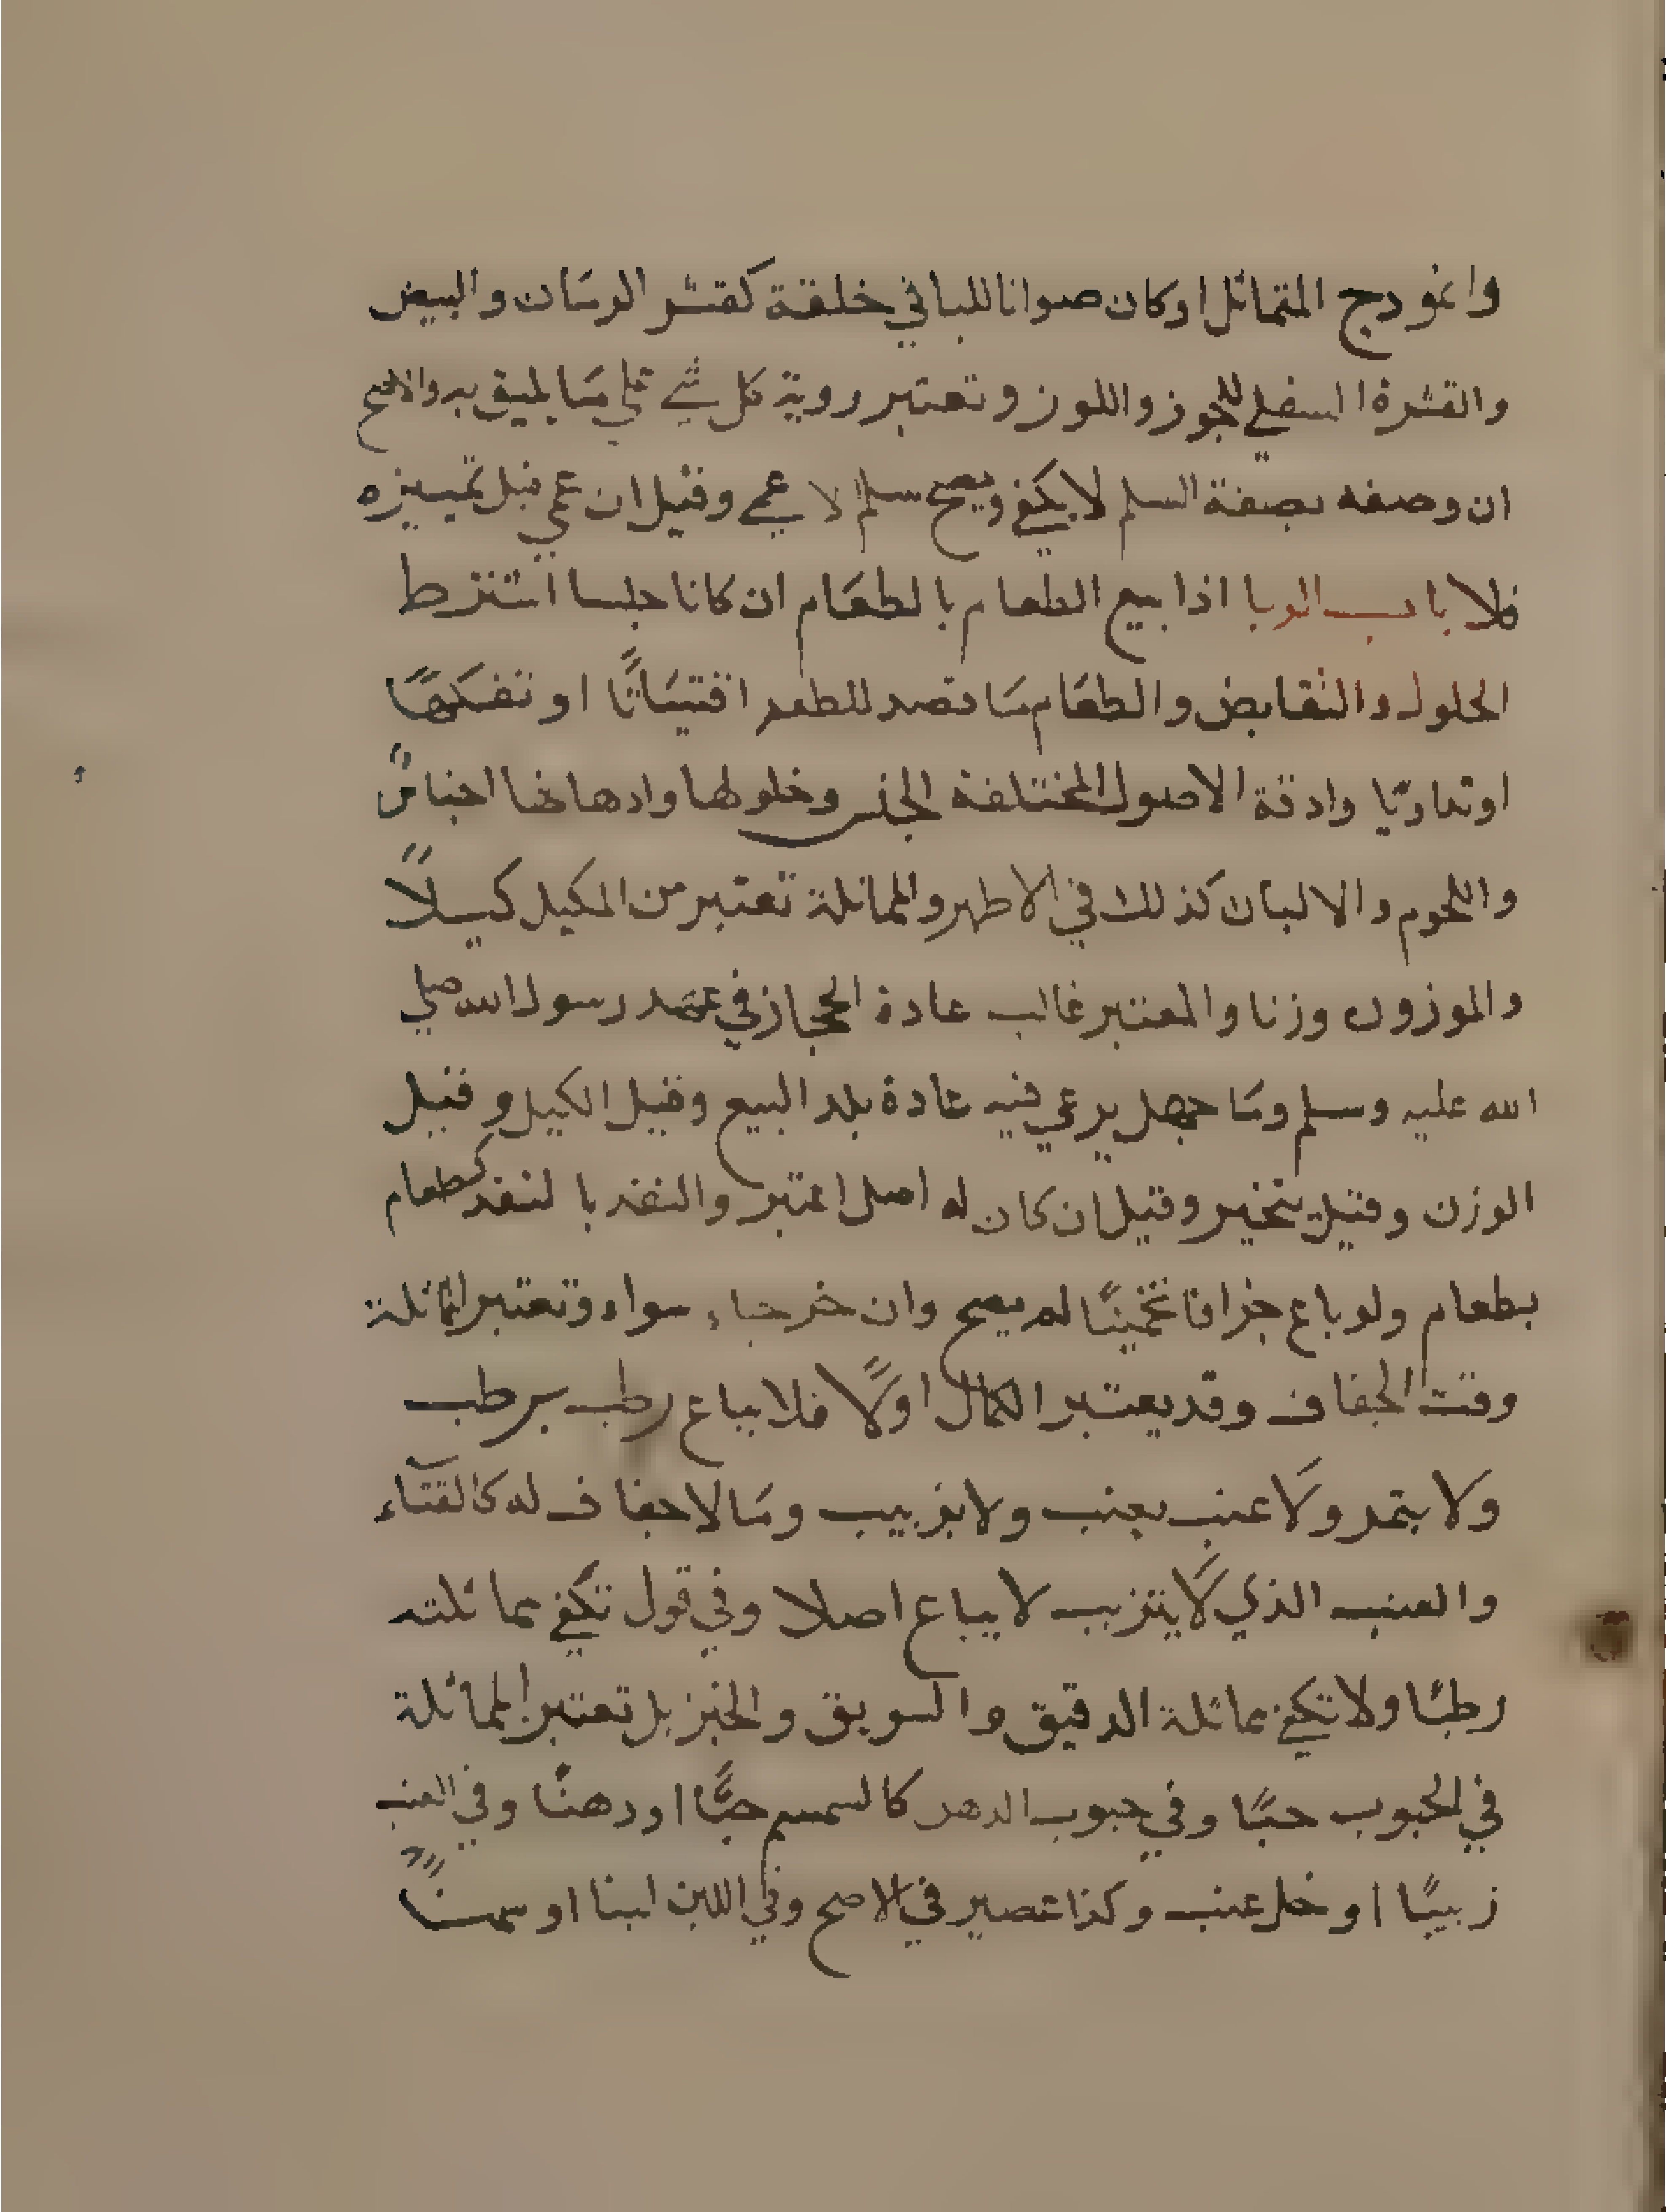 وانموذج المتماثل او كان صوانا للباقي خلقة كقشر الرمان والبيض
والقشرة السفلي للجوز واللوز وتعتبر روية كل شي علي ما يليق به والاصح
ان وصفه بصفة السلم لا يكفي ويصح سلم الاعمي وقيل ان عمي قبل تمييزه
فلا باب الربا اذا بيع الطعام بالطعام ان كانا جنسا اشترط
الحلول والتقابض والطعام ما قصد للطعم اقتياتًا او تفكهًا
او تداويًا وادقة الاصول المختلفة الجنس وخلولها وادهانها اجناسً
واللحوم والالبان كذلك في الاظهر والمماثلة تعتبر من المكيل كيلاً
والموزون وزنا والمعتبر غالب عادة الحجاز في عهد رسول الله صلي
الله عليه وسلم وما جهل يرعي فيه عادة بلد البيع وقيل الكيل وقيل
الوزن وقيل يتخير وقيل ان كان له اصل اعتبر والنقد بالنقد كطعام
بطعام ولو باع جزافا تخمينًا لم يصح وان خرجاء سواء وتعتبر المماثلة
وقت الجفاف وقد يعتبر الكمال اولاً فلا يباع رطب برطب
ولا بتمر ولا عنب بعنب ولا بزبيب وما لا جفاف له كالقثآء
والعنب الذي لا يتزبب لا يباع اصلا وفي قول تكفي مماثلته
رطبًا ولا تكفي مماثلة الدقيق والسويق والخبز بل تعتبر المماثلة
في الحبوب حبًا وفي حبوب الدهن كالسمسم حبًّا او دهنًا وفي العنب
زبيبًا او خل عنب وكذا عصير في الاصح وفي اللبن لبنا او سمنًا